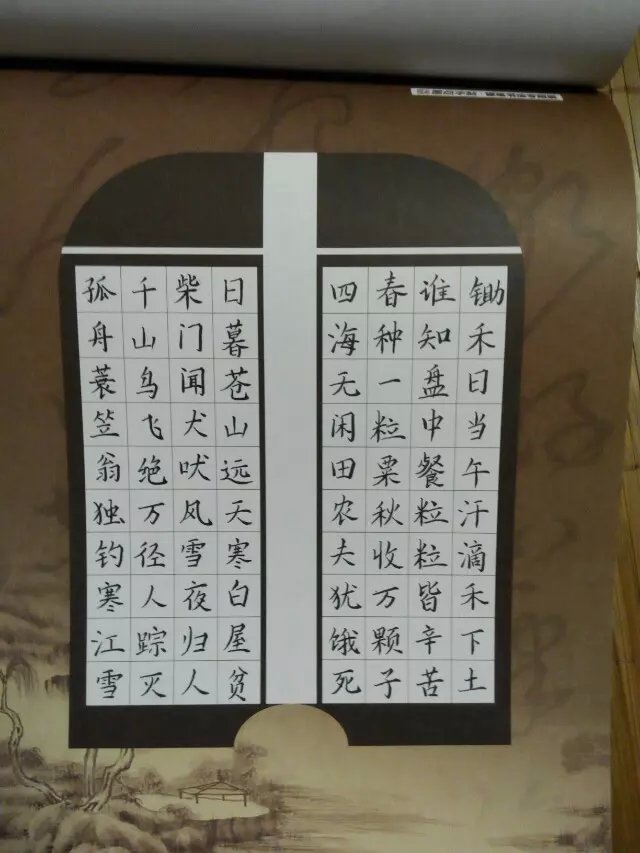 锄禾日当午汗滴禾下土
谁知盘中餐粒粒皆辛苦
春种一粒粟秋收万颗子
四海无闲田农夫犹饿死
日暮苍山远天寒白屋贫
柴门闻犬吠风雪夜归人
千山鸟飞绝万径人踪灭
孤舟蓑笠翁独钓寒江雪